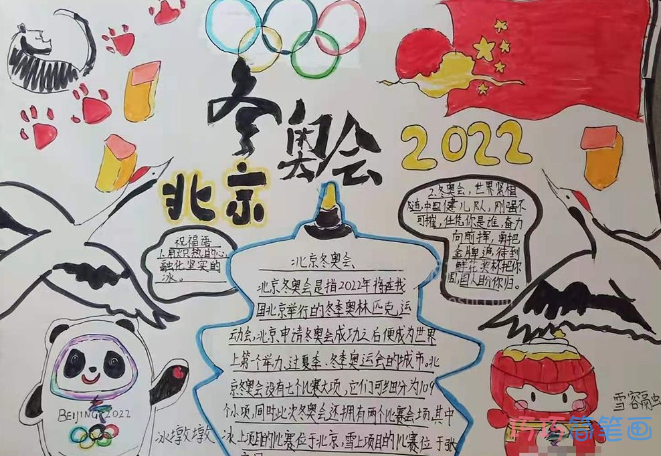 冬奥会
2022
北京
祝福每
上用炽热的心
融化坚实的
冰。
2.冬奥会,世界紧相
随,中国健儿队,刚强不
可摧,任凭你是谁,奋力
向前挥,朝把
金牌追,得到
鲜花奖杯把你
围,国人盼你归。
北京冬奥会
北京冬奥会是指2022年将在我
国北京举行的冬季奥林匹克运
动会,北京申请冬奥会成功之后便成为世界
上第一个举办过夏季、冬季奥运会的城市。北
京冬奥会设有七个比赛大项,它们可细分为109
个小项,同时此次冬奥会还拥有两个比赛会场,其中
冰上项目的比赛位于北京,雪上项目的比赛位于张
BEIJING 2022
冰墩墩
雪容融
简笔画